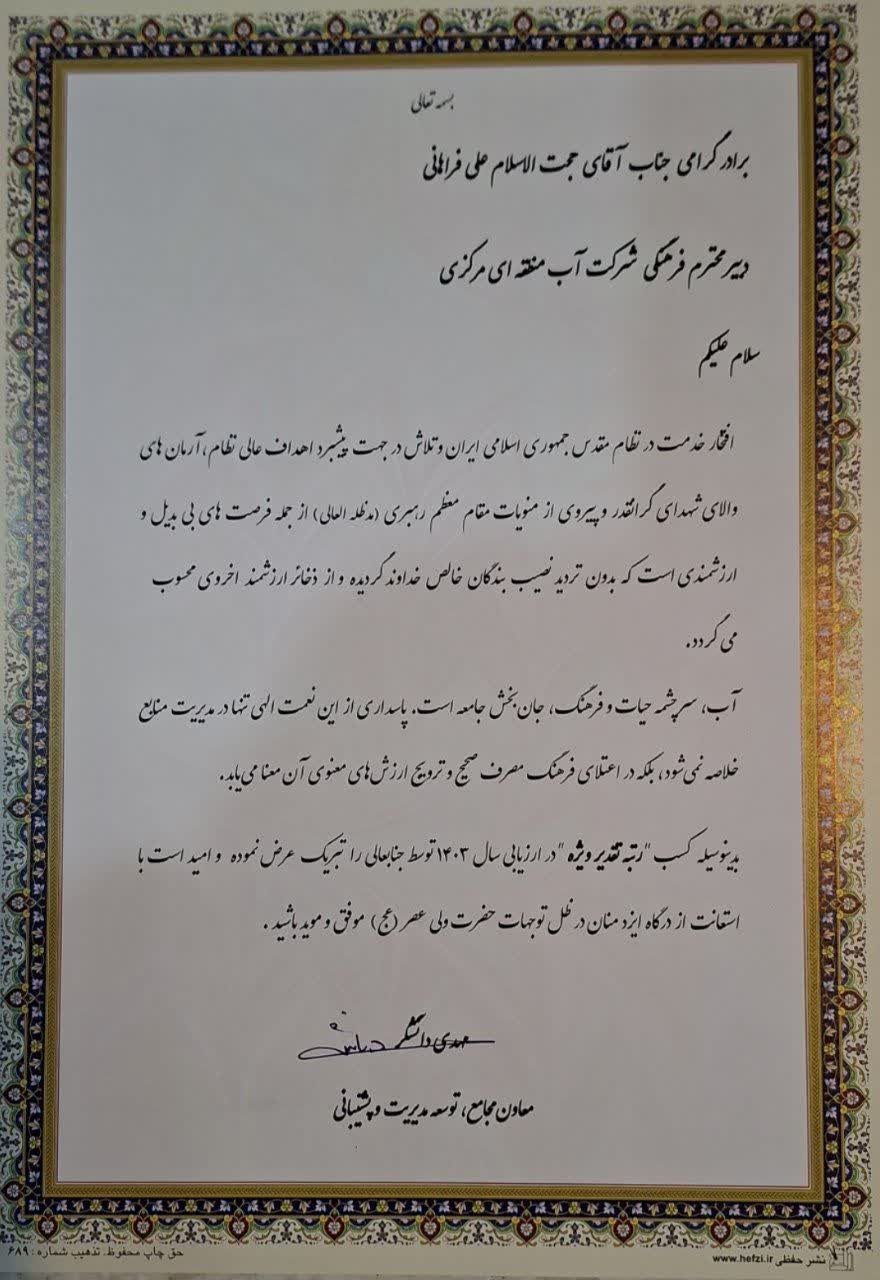 بسمه تعالی
برادر گرامی جناب آقای حجت الاسلام علی فراهانی
دبیر محترم فرهنگی شرکت آب منقه ای مرکزی
سلام علیکم
افتخار خدمت در نظام مقدس جمهوری اسلامی ایران و تلاش در جهت پیشبرد اهداف عالی نظام، آرمان های
والای شهدای گرانقدر و پیروی از منویات مقام معظم رهبری (مدظله العالی) از جمله فرصت های بی بدیل و
ارزشمندی است که بدون تردید نصیب بندگان خالص خداوند گردیده و از ذخائر ارزشمند اخروی محسوب
می گردد.
آب، سرچشمه حیات و فرهنگ، جان‌بخش جامعه است. پاسداری از این نعمت الهی تنها در مدیریت منابع
خلاصه نمی‌شود، بلکه در اعتلای فرهنگ مصرف صحیح و ترویج ارزش‌های معنوی آن معنا می‌یابد.
بدینوسیله کسب "رتبه تقدیر ویژه" در ارزیابی سال ۱۴۰۳ توسط جنابعالی را تبریک عرض نموده و امید است با
استعانت از درگاه ایزد منان در ظل توجهات حضرت ولی عصر (عج) موفق و موید باشید.
مهدی دانشگر
معاون مجامع، توسعه مدیریت و پشتیبانی
نشر حفظی www.hefzi.ir
حق چاپ محفوظ. تذهیب شماره: ۶۸۹